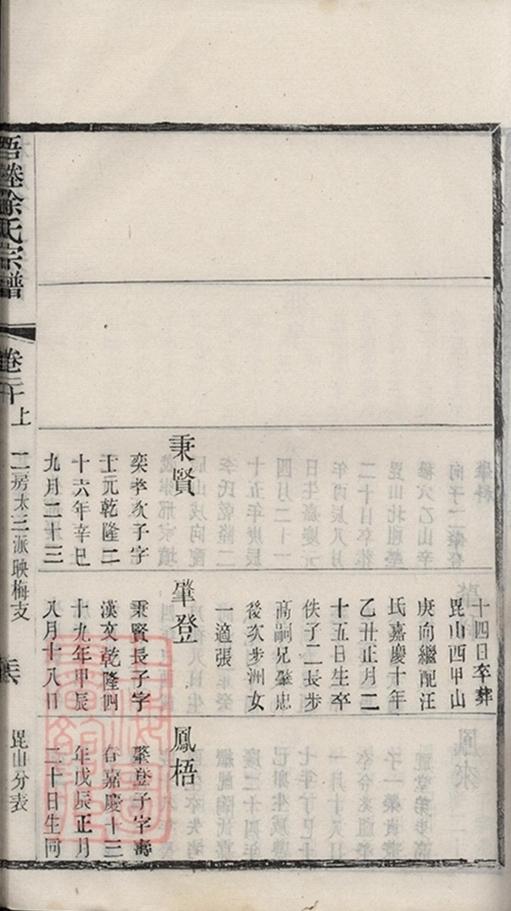 十四日卒葬
毘山西甲山
庚向繼配汪
氏嘉慶十年
乙丑正月二
十五日生卒
佚子二長步
高嗣兄肇忠
後次步洲女
一適張
秉賢
奕孝次子字
士元乾隆二
十六年辛巳
九月二十三
肇登
秉賢長子字
漢文乾隆四
十九年甲辰
八月十八日
鳳梧
肇登子字壽
春嘉慶十三
年戊辰正月
二十日生同
梧塍徐氏宗譜
卷 上
二房太三派映梅支
毘山分表